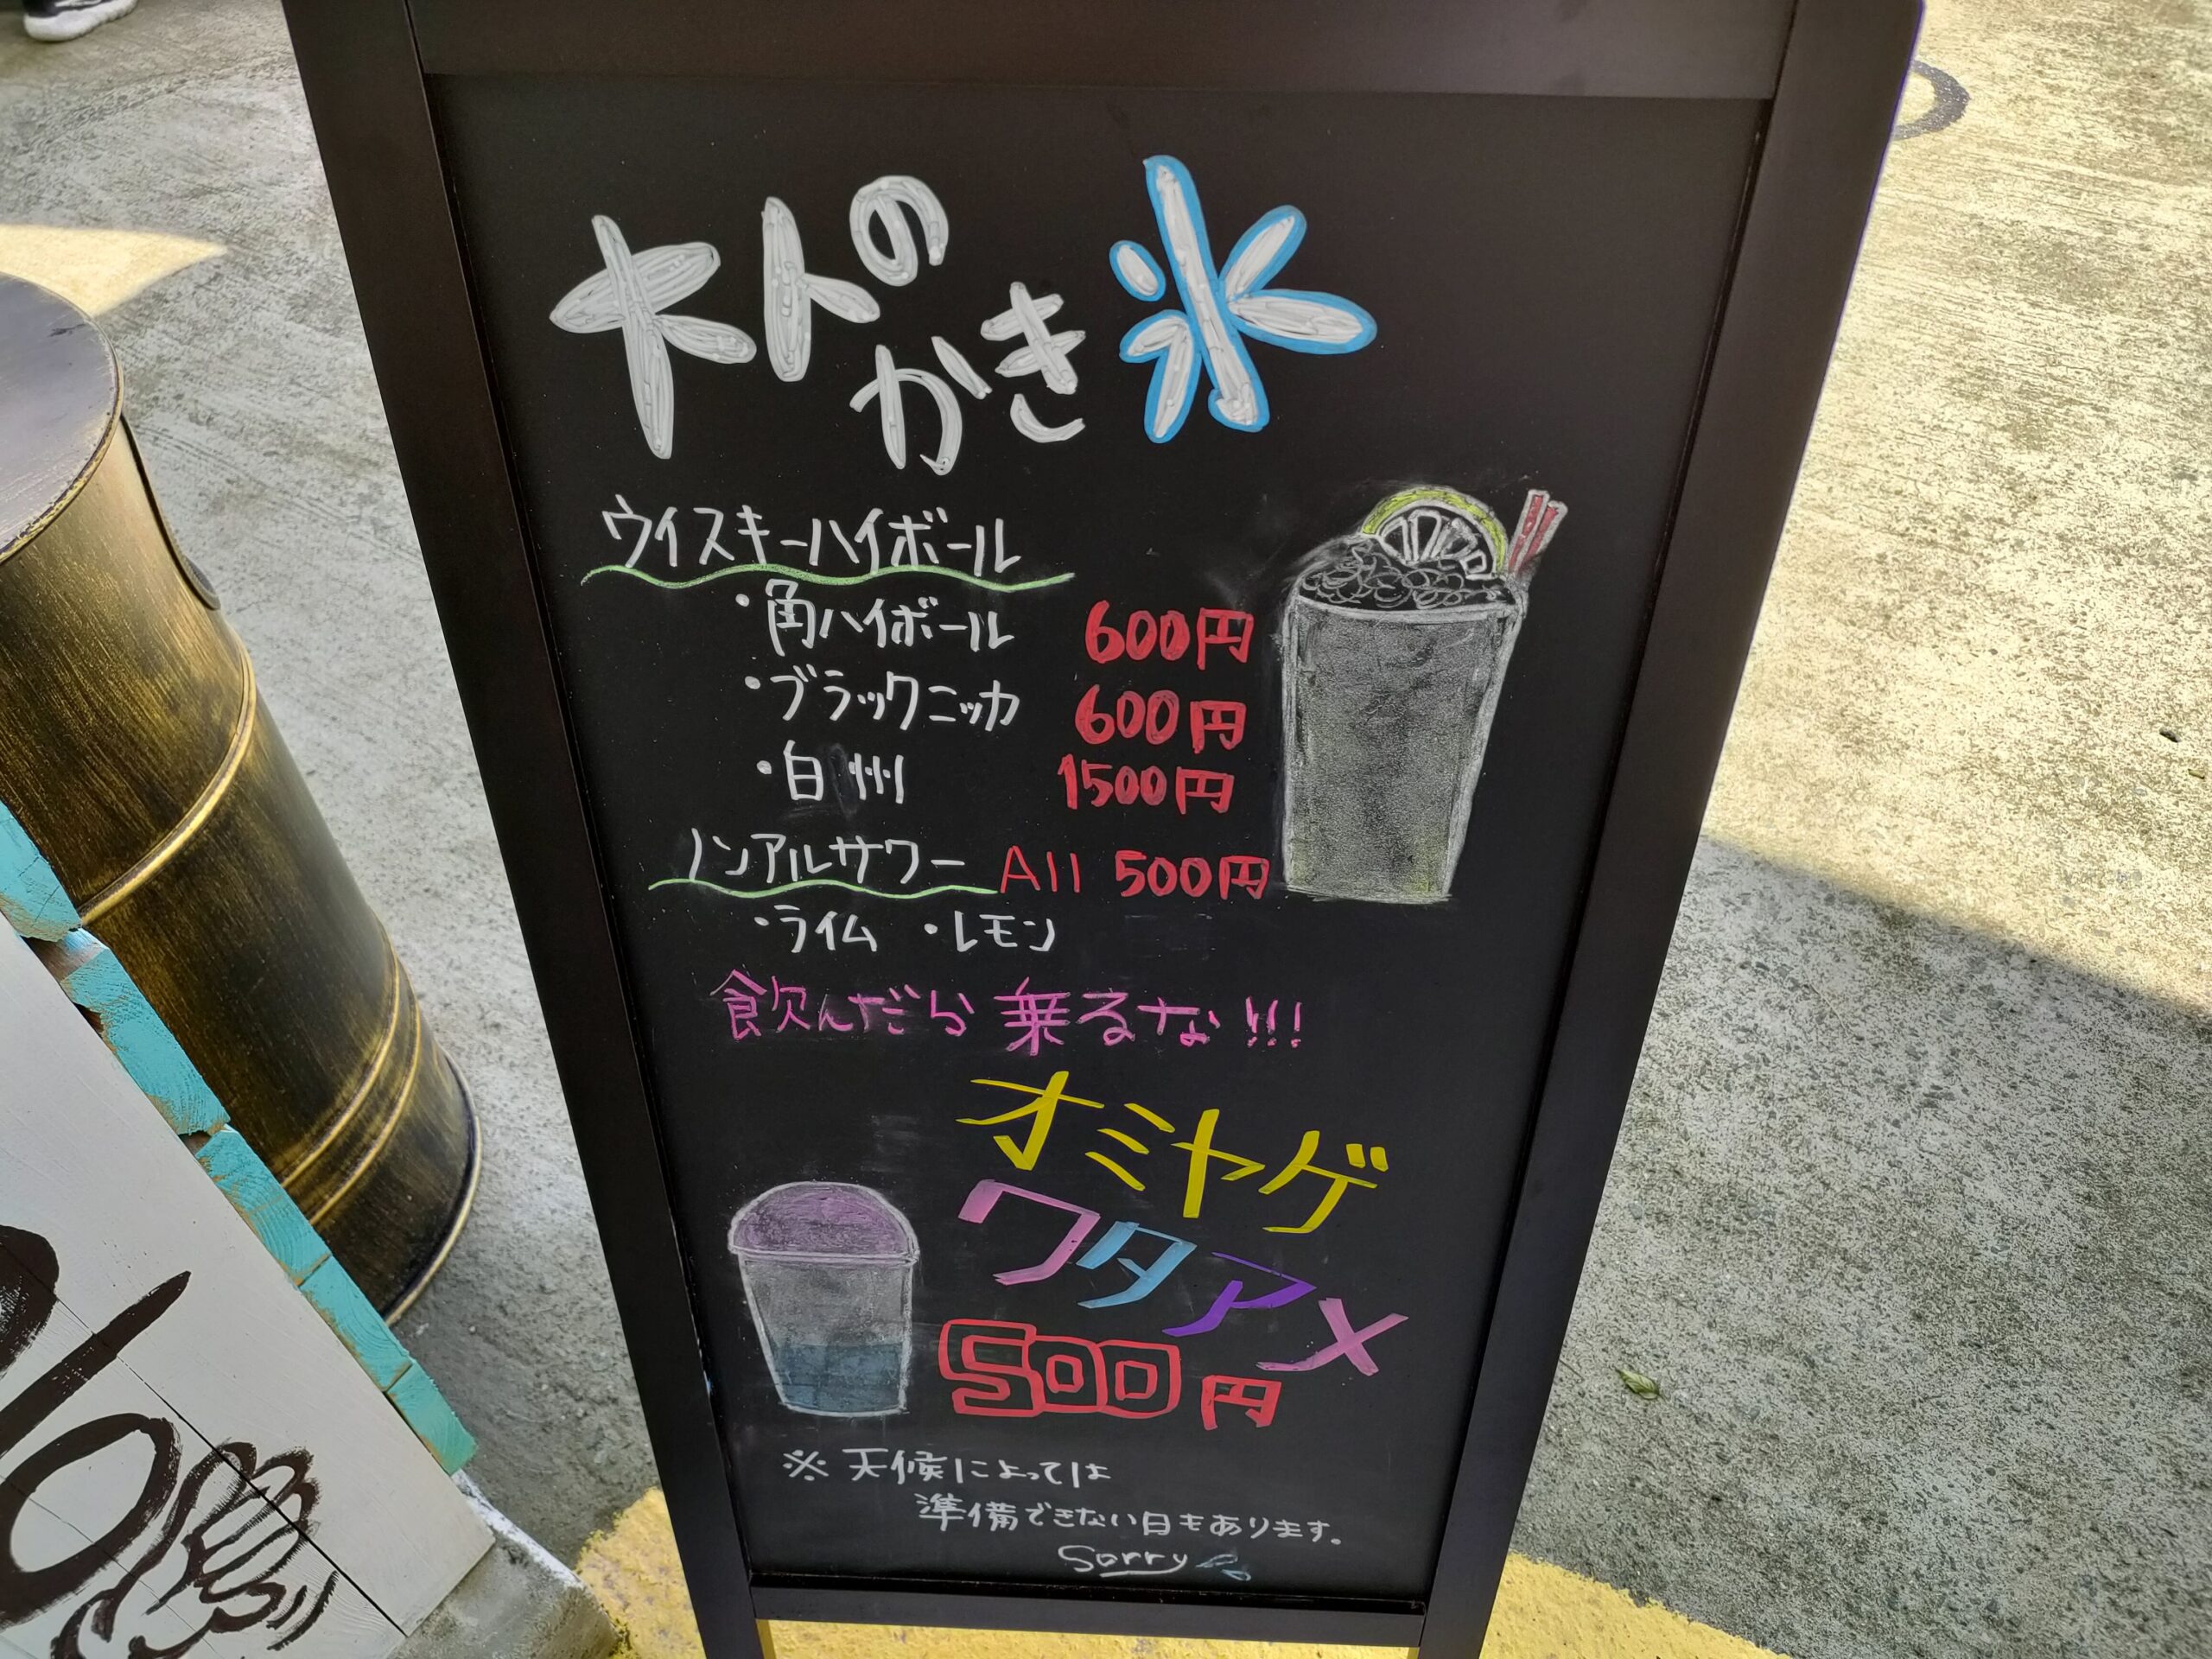 大人の
かき氷
ウイスキーハイボール
・角ハイボール 600円
・ブラックニッカ 600円
・白州 1500円
ノンアルサワー All 500円
・ライム ・レモン
飲んだら 乗るな!!!
オミヤゲ
ワタアメ
500円
※天候によっては
準備できない日もあります。
Sorry